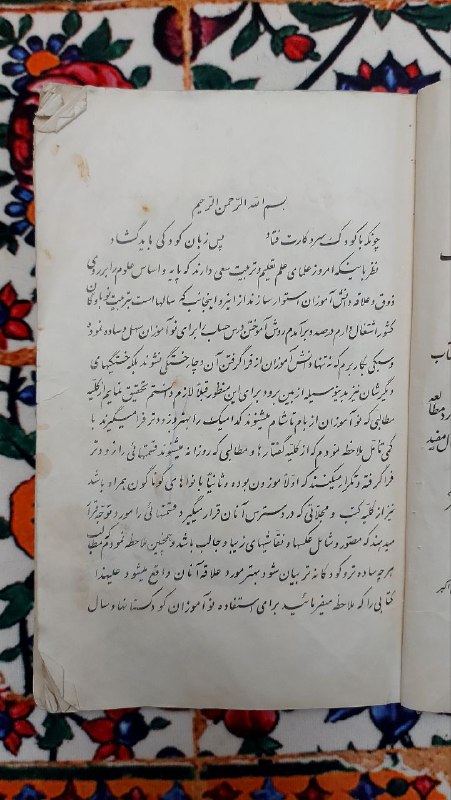 بسم الله الرحمن الرحیم
چونکه با کودک سر و کارت فتاد پس زبان کودکی باید گشاد
نظر باینکه امروز علمای علم تعلیم و تربیت سعی دارند که پایه و اساس علوم را بر روی
ذوق و علاقه دانش آموزان استوار سازند از اینرو اینجانب که سالها است بتربیت نوباوگان
کشور اشتغال دارم درصدد برآمدم روش آموختن درس حساب را برای نوآموزان سهل و ساده نموده
و سبکی بکار برم که نه تنها دانش آموزان از فرا گرفتن آن دچار خستگی نشوند بلکه خستگیهای
دیگرشان نیز بدینوسیله از بین برود برای این منظور قبلا لازم دانستم تحقیق نمایم از کلیه
مطالبی که نوآموزان از بام تا شام میشنوند کدامیک را بهتر و زودتر فرا میگیرند با
کمی تأمل ملاحظه نمودم که از کلیه گفتارها و مطالبی که روزانه میشنوند قسمتهائی را زودتر
فرا گرفته و تکرار میکنند که اولا موزون بوده و ثانیا با نواهای گوناگون همراه باشد
نیز از کلیه کتب و مجلاتی که در دسترس آنان قرار میگیرد قسمتهائی را مورد توجه قرار
میدهند که مصور و شامل عکسها و نقاشیهای زیبا و جالب باشد و همچنین ملاحظه نمودم مطالب
هرچه ساده تر و کودکانه تر بیان شود بهتر مورد علاقه آنان واقع میشود علیهذا
کتابی را که ملاحظه میفرمائید برای استفاده نوآموزان کودکستانها و سال
کتاب
مطالعه
مفید